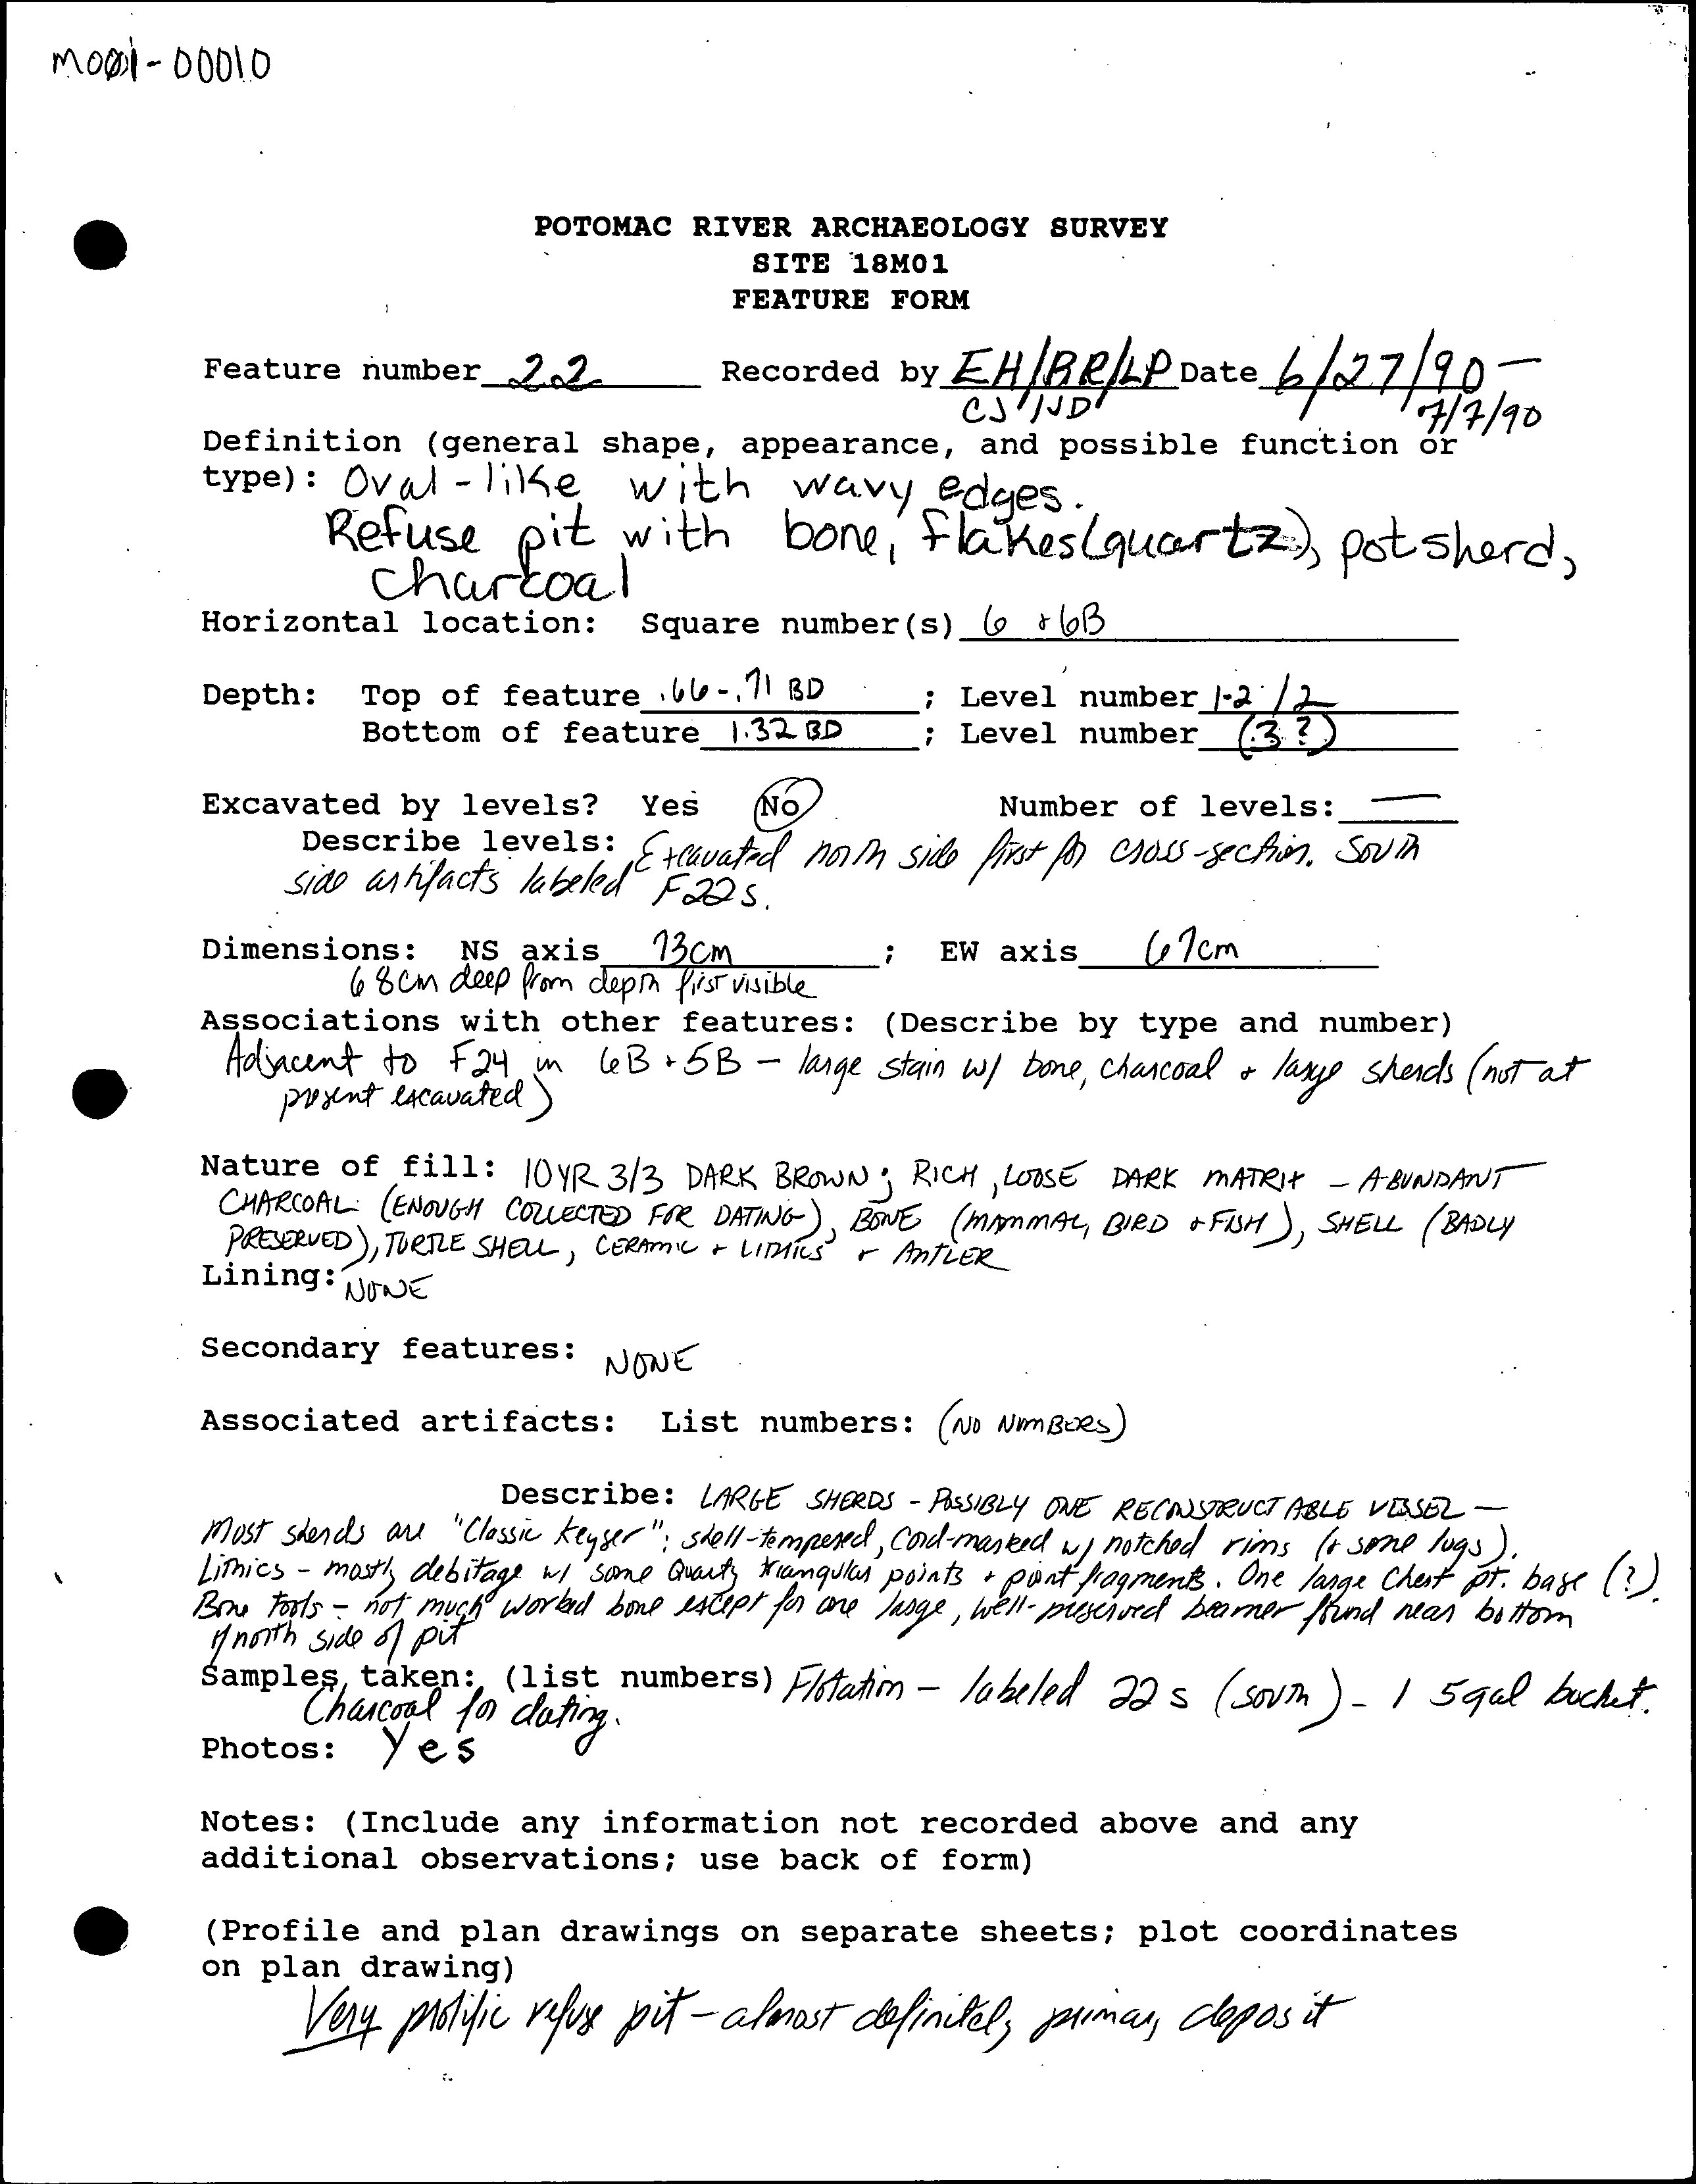 M001-00010
POTOMAC RIVER ARCHAEOLOGY SURVEY
SITE 18M01
FEATURE FORM
Feature number 22 Recorded by EH/BR/LP Date 6/27/90 -
CJ/JD 7/7/90
Definition (general shape, appearance, and possible function or
type): Oval-like with wavy edges.
Refuse pit with bone, flakes (quartz), potsherd,
charcoal
Horizontal location: Square number(s) 6 + 6B
Depth: Top of feature .66-.71 BD ; Level number 1-2 / 2
Bottom of feature 1.32 BD ; Level number (3?)
Excavated by levels? Yes No Number of levels: —
Describe levels: Excavated north side first for cross-section. South
side artifacts labeled F22s.
Dimensions: NS axis 73cm ; EW axis 67cm
68cm deep from depth first visible
Associations with other features: (Describe by type and number)
Adjacent to F24 in 6B + 5B - large stain w/ bone, charcoal + large sherds (not at
present excavated)
Nature of fill: 10YR 3/3 DARK BROWN; RICH, LOOSE DARK MATRIX - ABUNDANT
CHARCOAL (ENOUGH COLLECTED FOR DATING), BONE (MAMMAL, BIRD + FISH), SHELL (BADLY
PRESERVED), TURTLE SHELL, CERAMIC + LITHICS + ANTLER
Lining: NONE
Secondary features: NONE
Associated artifacts: List numbers: (NO NUMBERS)
Describe: LARGE SHERDS - POSSIBLY ONE RECONSTRUCTABLE VESSEL -
Most sherds are "Classic Keyser"; shell-tempered, cord-marked w/ notched rims (+ some lugs).
Lithics - mostly debitage w/ some Quartz triangular points + point fragments. One large Chert pt. base (?).
Bone tools - not much worked bone except for one large, well-preserved beamer found near bottom
of north side of pit
Samples taken: (list numbers) Flotation - labeled 22s (south) - 1 5gal bucket.
Charcoal for dating.
Photos: Yes
Notes: (Include any information not recorded above and any
additional observations; use back of form)
(Profile and plan drawings on separate sheets; plot coordinates
on plan drawing)
Very prolific refuse pit - almost definitely primary deposit